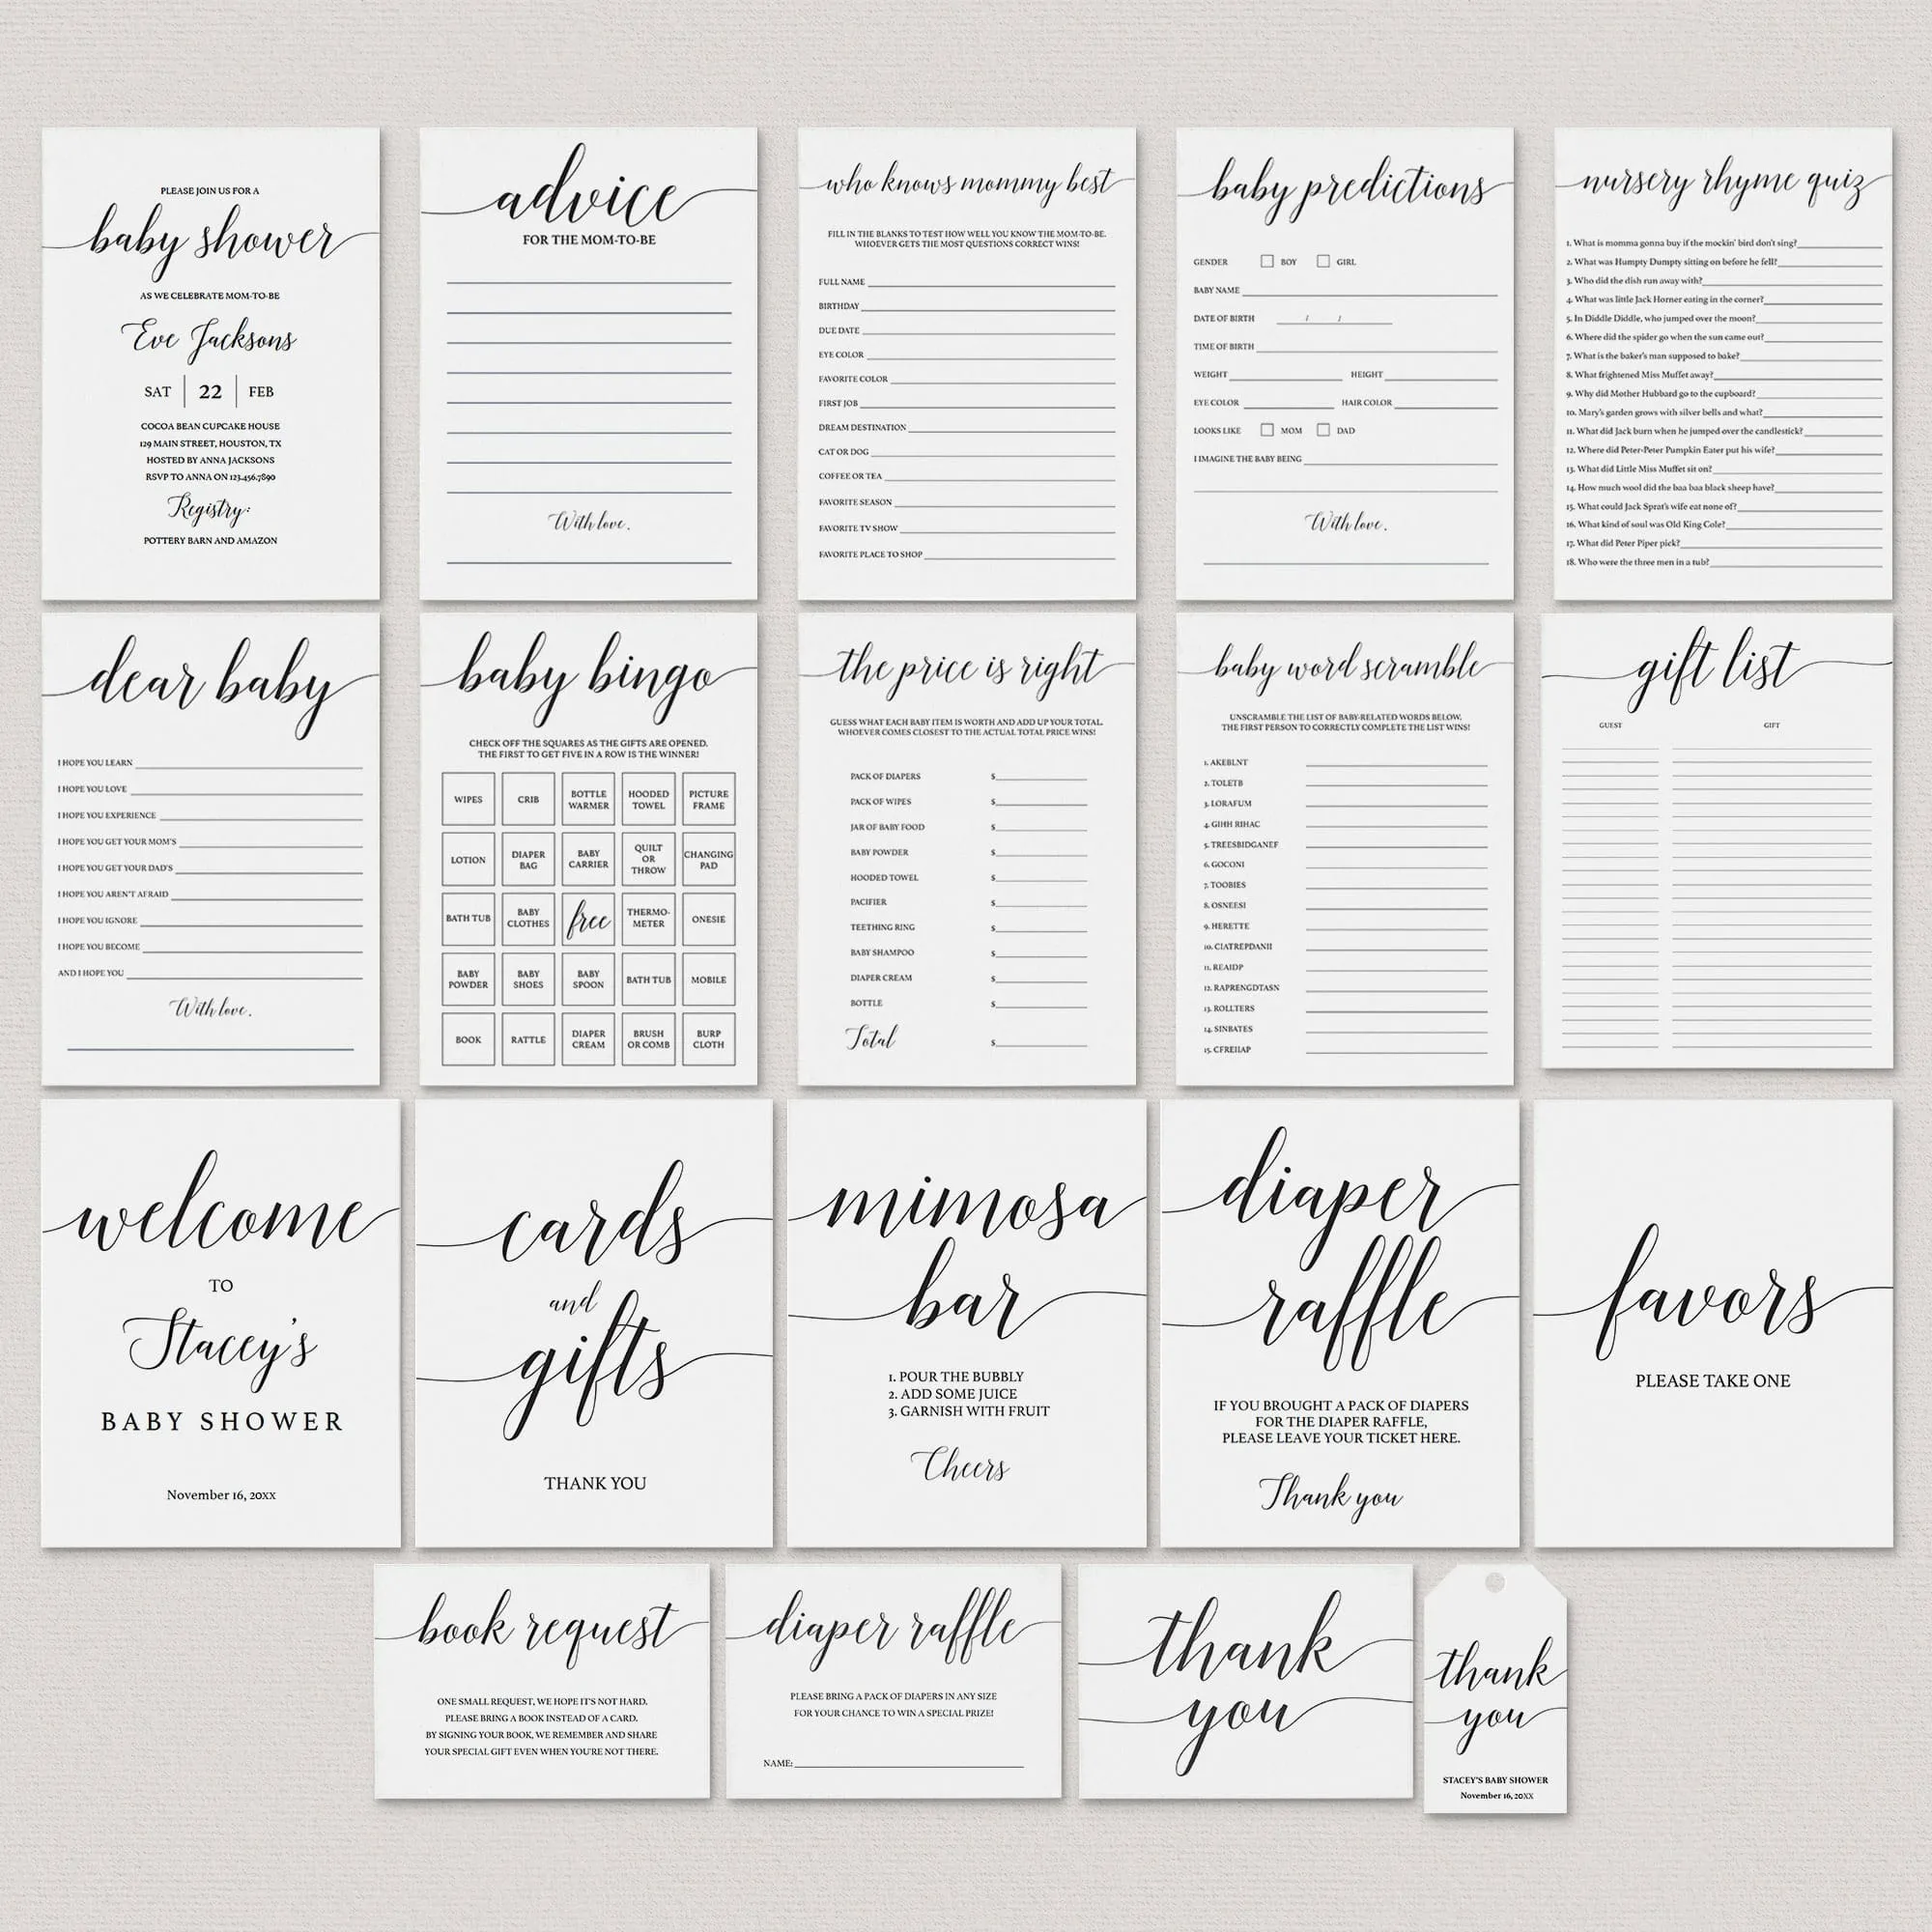 PLEASE JOIN US FOR A
baby shower
AS WE CELEBRATE MOM-TO-BE
Eve Jacksons
SAT 22 FEB
COCOA BEAN CUPCAKE HOUSE
129 MAIN STREET, HOUSTON, TX
HOSTED BY ANNA JACKSONS
RSVP TO ANNA ON 123.456.7890
Registry:
POTTERY BARN AND AMAZON
advice
FOR THE MOM-TO-BE
With love,
who knows mommy best
FILL IN THE BLANKS TO TEST HOW WELL YOU KNOW THE MOM-TO-BE.
WHOEVER GETS THE MOST QUESTIONS CORRECT WINS!
FULL NAME
BIRTHDAY
DUE DATE
EYE COLOR
FAVORITE COLOR
FIRST JOB
DREAM DESTINATION
CAT OR DOG
COFFEE OR TEA
FAVORITE SEASON
FAVORITE TV SHOW
FAVORITE PLACE TO SHOP
baby predictions
GENDER BOY GIRL
BABY NAME
DATE OF BIRTH / /
TIME OF BIRTH
WEIGHT HEIGHT
EYE COLOR HAIR COLOR
LOOKS LIKE MOM DAD
I IMAGINE THE BABY BEING
With love,
nursery rhyme quiz
1. What is momma gonna buy if the mockin' bird don't sing?
2. What was Humpty Dumpty sitting on before he fell?
3. Who did the dish run away with?
4. What was little Jack Horner eating in the corner?
5. In Diddle Diddle, who jumped over the moon?
6. Where did the spider go when the sun came out?
7. What is the baker's man supposed to bake?
8. What frightened Miss Muffet away?
9. Why did Mother Hubbard go to the cupboard?
10. Mary's garden grows with silver bells and what?
11. What did Jack burn when he jumped over the candlestick?
12. Where did Peter-Peter Pumpkin Eater put his wife?
13. What did Little Miss Muffet sit on?
14. How much wool did the baa baa black sheep have?
15. What could Jack Sprat's wife eat none of?
16. What kind of soul was Old King Cole?
17. What did Peter Piper pick?
18. Who were the three men in a tub?
dear baby
I HOPE YOU LEARN
I HOPE YOU LOVE
I HOPE YOU EXPERIENCE
I HOPE YOU GET YOUR MOM'S
I HOPE YOU GET YOUR DAD'S
I HOPE YOU AREN'T AFRAID
I HOPE YOU IGNORE
I HOPE YOU BECOME
AND I HOPE YOU
With love,
baby bingo
CHECK OFF THE SQUARES AS THE GIFTS ARE OPENED.
THE FIRST TO GET FIVE IN A ROW IS THE WINNER!
WIPES CRIB BOTTLE WARMER HOODED TOWEL PICTURE FRAME
LOTION DIAPER BAG BABY CARRIER QUILT OR THROW CHANGING PAD
BATH TUB BABY CLOTHES free THERMO-METER ONESIE
BABY POWDER BABY SHOES BABY SPOON BATH TUB MOBILE
BOOK RATTLE DIAPER CREAM BRUSH OR COMB BURP CLOTH
the price is right
GUESS WHAT EACH BABY ITEM IS WORTH AND ADD UP YOUR TOTAL.
WHOEVER COMES CLOSEST TO THE ACTUAL TOTAL PRICE WINS!
PACK OF DIAPERS $
PACK OF WIPES $
JAR OF BABY FOOD $
BABY POWDER $
HOODED TOWEL $
PACIFIER $
TEETHING RING $
BABY SHAMPOO $
DIAPER CREAM $
BOTTLE $
Total $
baby word scramble
UNSCRAMBLE THE LIST OF BABY-RELATED WORDS BELOW.
THE FIRST PERSON TO CORRECTLY COMPLETE THE LIST WINS!
1. AKEBLNT
2. TOLETB
3. LORAFUM
4. GIHH RIHAC
5. TREESBIDGANEF
6. GOCONI
7. TOOBIES
8. OSNEESI
9. HERETTE
10. CIATREPDANII
11. REAIDP
12. RAPRENGDTASN
13. ROLLTERS
14. SINBATES
15. CFREIIAP
gift list
GUEST GIFT
welcome
TO
Stacey's
BABY SHOWER
November 16, 20XX
cards
and
gifts
THANK YOU
mimosa
bar
1. POUR THE BUBBLY
2. ADD SOME JUICE
3. GARNISH WITH FRUIT
Cheers
diaper
raffle
IF YOU BROUGHT A PACK OF DIAPERS
FOR THE DIAPER RAFFLE,
PLEASE LEAVE YOUR TICKET HERE.
Thank you
favors
PLEASE TAKE ONE
book request
ONE SMALL REQUEST, WE HOPE IT'S NOT HARD.
PLEASE BRING A BOOK INSTEAD OF A CARD.
BY SIGNING YOUR BOOK, WE REMEMBER AND SHARE
YOUR SPECIAL GIFT EVEN WHEN YOU'RE NOT THERE.
diaper raffle
PLEASE BRING A PACK OF DIAPERS IN ANY SIZE
FOR YOUR CHANCE TO WIN A SPECIAL PRIZE!
NAME:
thank
you
thank
you
STACEY'S BABY SHOWER
November 16, 20XX